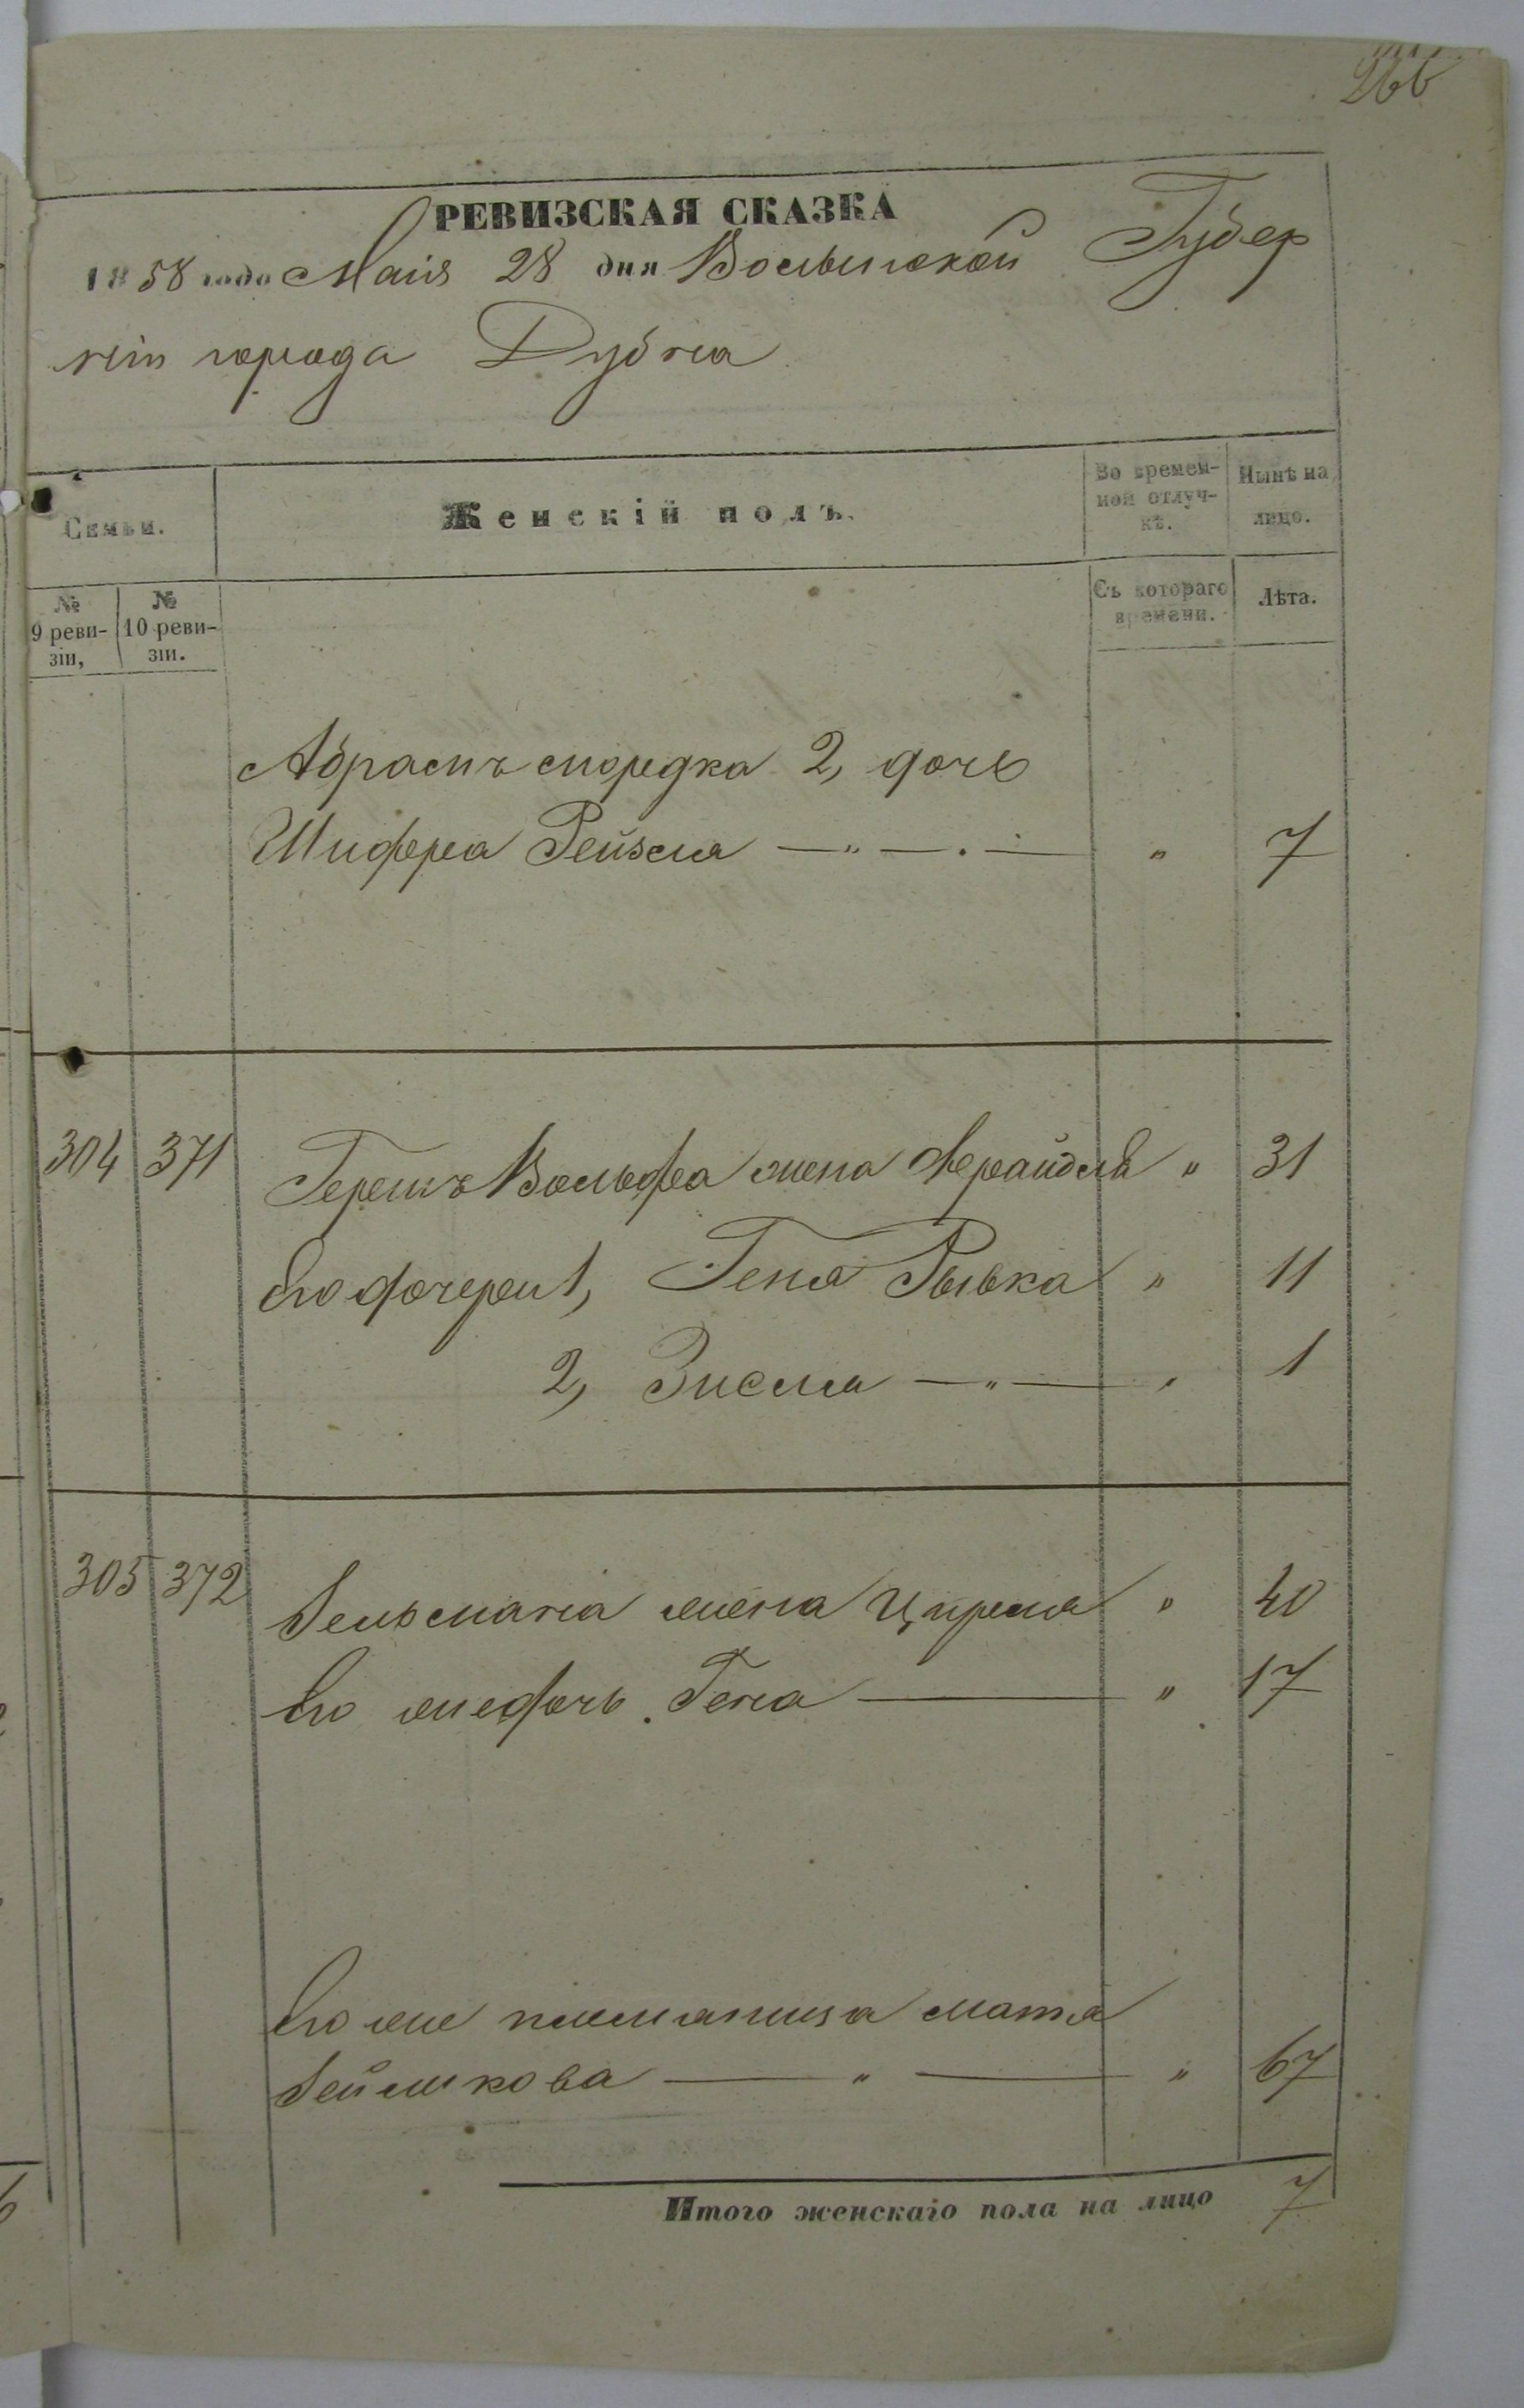 266
РЕВИЗСКАЯ СКАЗКА
1858 года Маія 28 дня Волынской Губер
ніи города Дубна
Семьи.
Женскій полъ.
Во времен-
ной отлуч-
кѣ.
Нынѣ на
лицо.
№
9 реви-
зіи,
№
10 реви-
зіи.
Съ котораго
времени.
Лѣта.
Абрамъ 2, дочь
Шифра Рейзля — " — . — " 7
304 371 Гершъ Вольфа жена Фрайдля " 31
Его дочери 1, Геня Рывка " 11
2, Зисля — " — " 1
305 372 Зельмана жена Цирля " 40
Его же дочь Гена — " 17
Его же
— " — " 67
Итого женскаго пола на лицо 7